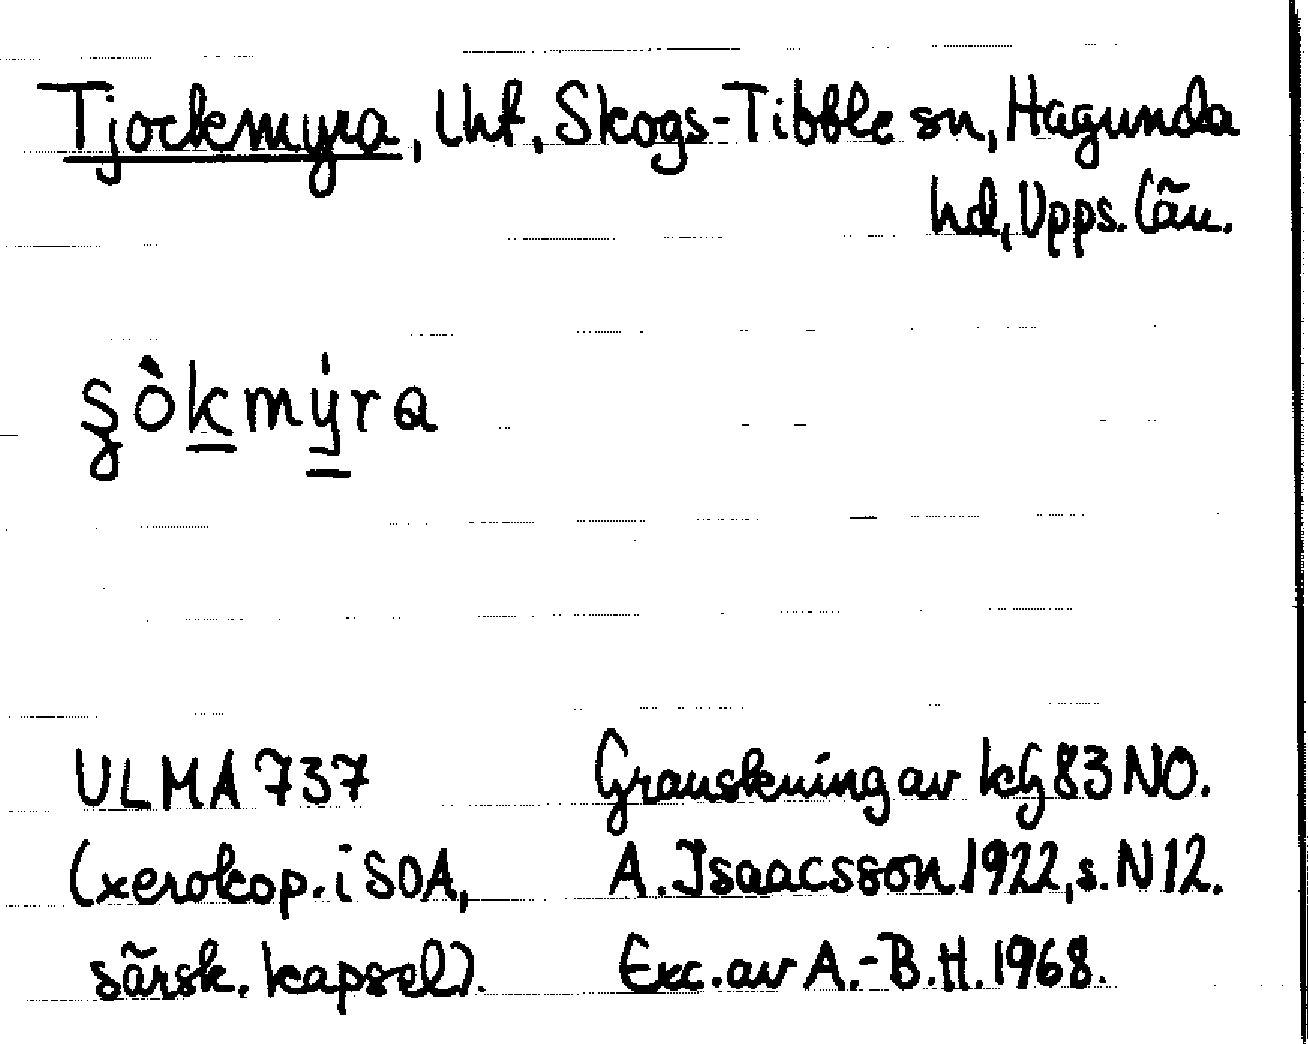 Tjockmyra, lht, Skogs-Tibble sn, Hagunda
hd, Upps. län.
şòkmýra
ULMA 737
(xerokop. i SOA,
särsk. kapsel).
Granskning av kG 83 NO.
A. Isaacsson 1922, s. N 12.
Exc. av A.-B. H. 1968.